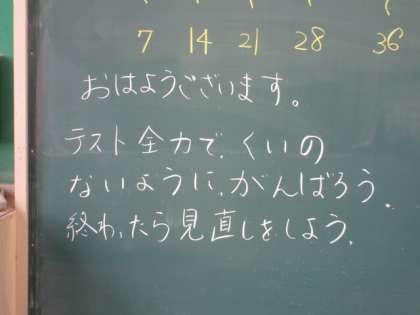 7 14 21 28 36
おはようございます。
テスト全力で、くいの
ないように、がんばろう。
終わったら見直しをしよう。